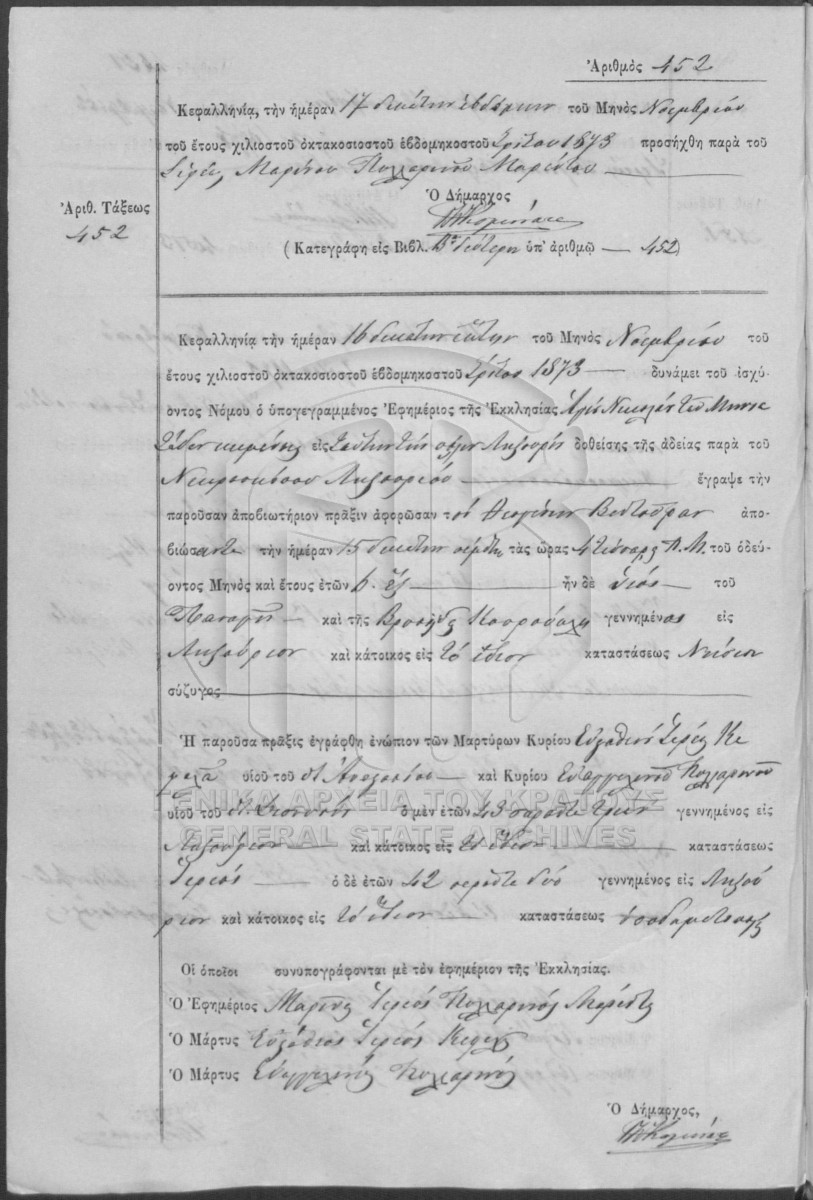 Ἀριθμὸς 452
Κεφαλληνίᾳ, τὴν ἡμέραν 17 δεκάτην ἑβδόμην τοῦ Μηνὸς Νοεμβρίου
τοῦ ἔτους χιλιοστοῦ ὀκτακοσιοστοῦ ἑβδομηκοστοῦ τρίτου 1873 προσήχθη παρὰ τοῦ
Ἱερέως Μαρίνου
Ὁ Δήμαρχος
Ἀριθ. Τάξεως
452
(Κατεγράφη εἰς Βιβλ. Βον δεύτερον ὑπ' ἀριθμῷ — 452)
Κεφαλληνίᾳ τὴν ἡμέραν 16 δεκάτην ἕκτην τοῦ Μηνὸς Νοεμβρίου τοῦ
ἔτους χιλιοστοῦ ὀκτακοσιοστοῦ ἑβδομηκοστοῦ τρίτου 1873 — δυνάμει τοῦ ἰσχύ
οντος Νόμου ὁ ὑπογεγραμμένος Ἐφημέριος τῆς Ἐκκλησίας Ἁγίου Νικολάου τοῦ
κειμένης εἰς ταύτην τὴν πόλιν Ληξουρίου δοθείσης τῆς ἀδείας παρὰ τοῦ
Ληξουρίου — ἔγραψε τὴν
παροῦσαν ἀποβιωτήριον πρᾶξιν ἀφορῶσαν τὸν Βεντούραν ἀπο-
βιώσαντα τὴν ἡμέραν 15 δεκάτην πέμπτην τὰς ὥρας 4 τέσσαρας Π. Μ. τοῦ ὁδεύ-
οντος Μηνὸς καὶ ἔτους ἐτῶν 6. ἓξ — ἦν δὲ υἱὸς — τοῦ
Παναγῆ — καὶ τῆς γεννημένος εἰς
Ληξούριον καὶ κάτοικος εἰς τὸ ἴδιον καταστάσεως Νήπιον
σύζυγος —
Ἡ παροῦσα πρᾶξις ἐγράφθη ἐνώπιον τῶν Μαρτύρων Κυρίου Εὐσταθίου Ἱερέως Κε
φαλᾶ υἱοῦ τοῦ — καὶ Κυρίου Εὐαγγελινοῦ Πολλαρινοῦ
υἱοῦ τοῦ ὁ μὲν ἐτῶν 43 σαράντα τριῶν γεννημένος εἰς
Ληξούριον — καὶ κάτοικος εἰς τὸ ἴδιον — καταστάσεως
Ἱερεὺς — ὁ δὲ ἐτῶν 42 σαράντα δύο γεννημένος εἰς Ληξού
ριον καὶ κάτοικος εἰς τὸ ἴδιον — καταστάσεως ὑποδηματοποιὸς
Οἱ ὁποῖοι συνυπογράφονται μὲ τὸν ἐφημέριον τῆς Ἐκκλησίας.
Ὁ Ἐφημέριος Μαρῖνος Ἱερεὺς
Ὁ Μάρτυς Εὐστάθιος Ἱερεὺς Κεφαλᾶς
Ὁ Μάρτυς Εὐαγγελινὸς Πολλαρινὸς
Ὁ Δήμαρχος,
ΓΕΝΙΚΑ ΑΡΧΕΙΑ ΤΟΥ ΚΡΑΤΟΥΣ
GENERAL STATE ARCHIVES